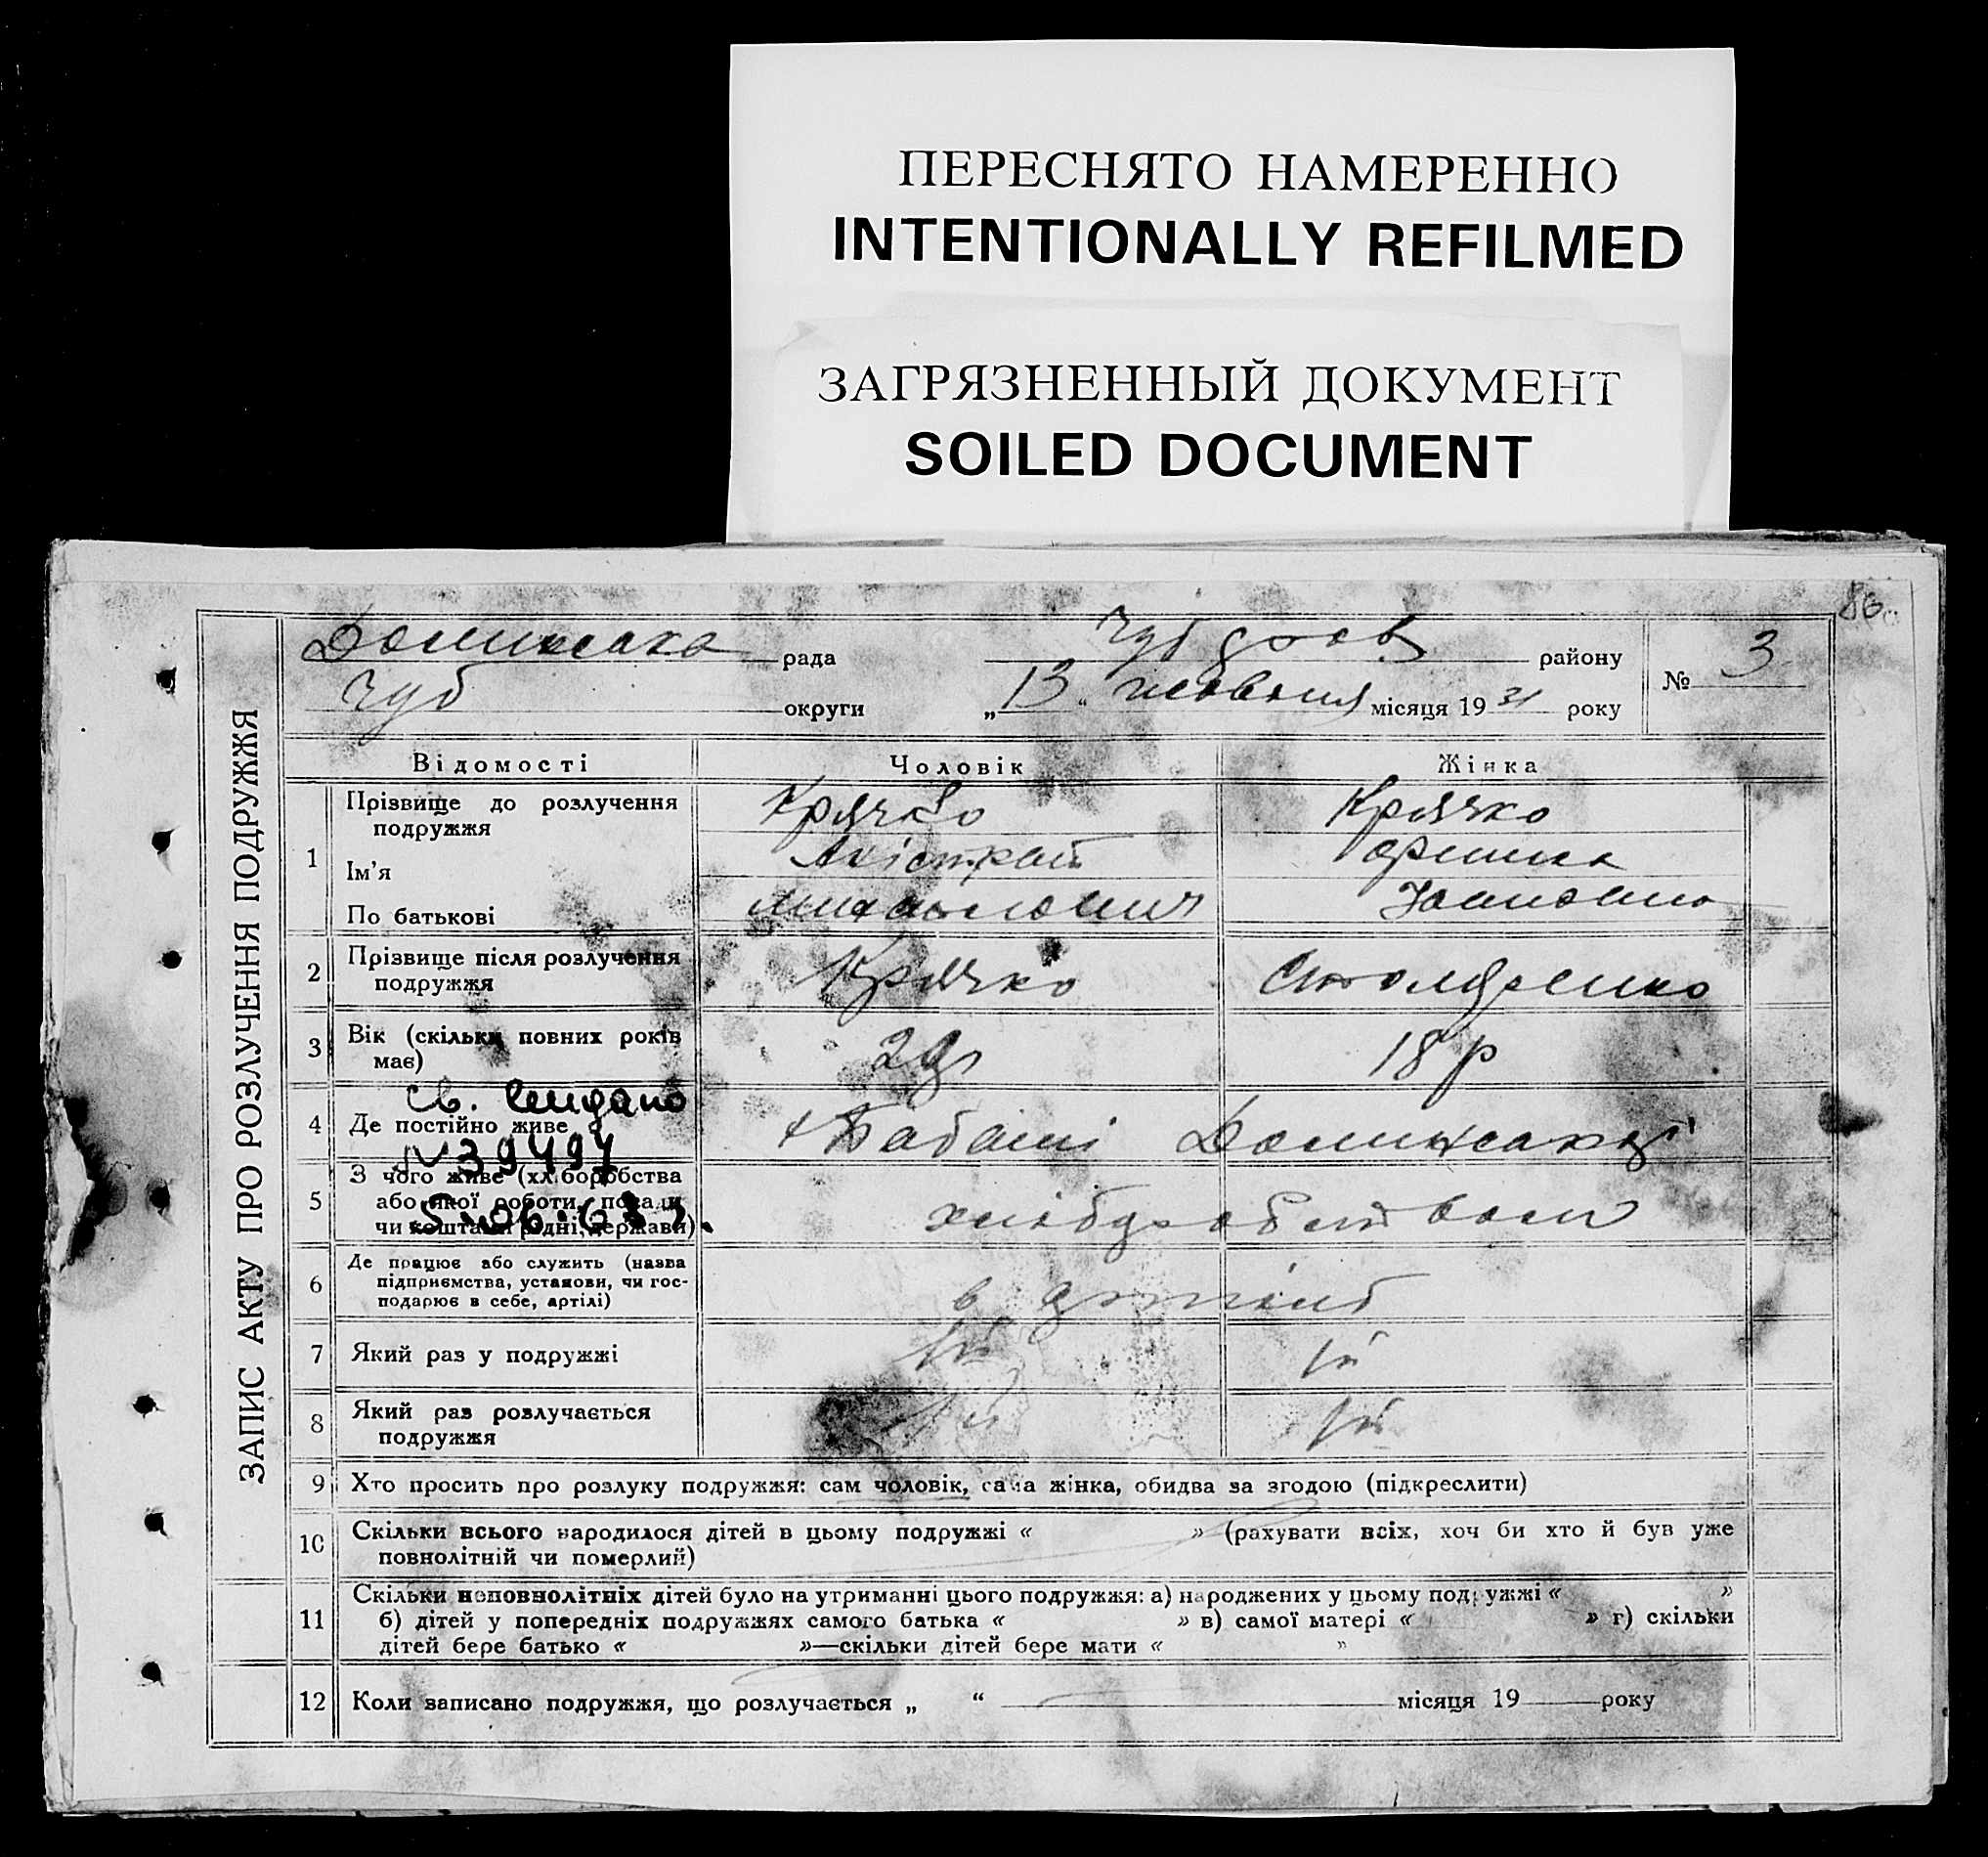 ПЕРЕСНЯТО НАМЕРЕННО
INTENTIONALLY REFILMED
ЗАГРЯЗНЕННЫЙ ДОКУМЕНТ
SOILED DOCUMENT
86
ЗАПИС АКТУ ПРО РОЗЛУЧЕННЯ ПОДРУЖЖЯ
рада району № 3
Чуб округи „13“ місяця 1931 року
Відомості Чоловік Жінка
1 Прізвище до розлучення подружжя Крячко Крячко
Ім'я
По батькові
2 Прізвище після розлучення подружжя Крячко Столяренко
3 Вік (скільки повних років має) 18 р
4 Де постійно живе
св. видано
№39497
5 З чого живе (хліборобства або якої роботи, посади чи коштами рідні, держави) хліборобством
6 Де працює або служить (назва підприємства, установи, чи господарює в себе, артілі) в
7 Який раз у подружжі Iй Iй
8 Який раз розлучається подружжя Iй Iй
9 Хто просить про розлуку подружжя: сам чоловік, сама жінка, обидва за згодою (підкреслити)
10 Скільки всього народилося дітей в цьому подружжі « » (рахувати всіх, хоч би хто й був уже
повнолітній чи померлий)
11 Скільки неповнолітніх дітей було на утриманні цього подружжя: а) народжених у цьому подружжі « »
б) дітей у попередніх подружжях самого батька « » в) самої матері « » г) скільки
дітей бере батько « »—скільки дітей бере мати « »
12 Коли записано подружжя, що розлучається „ “ місяця 19 року